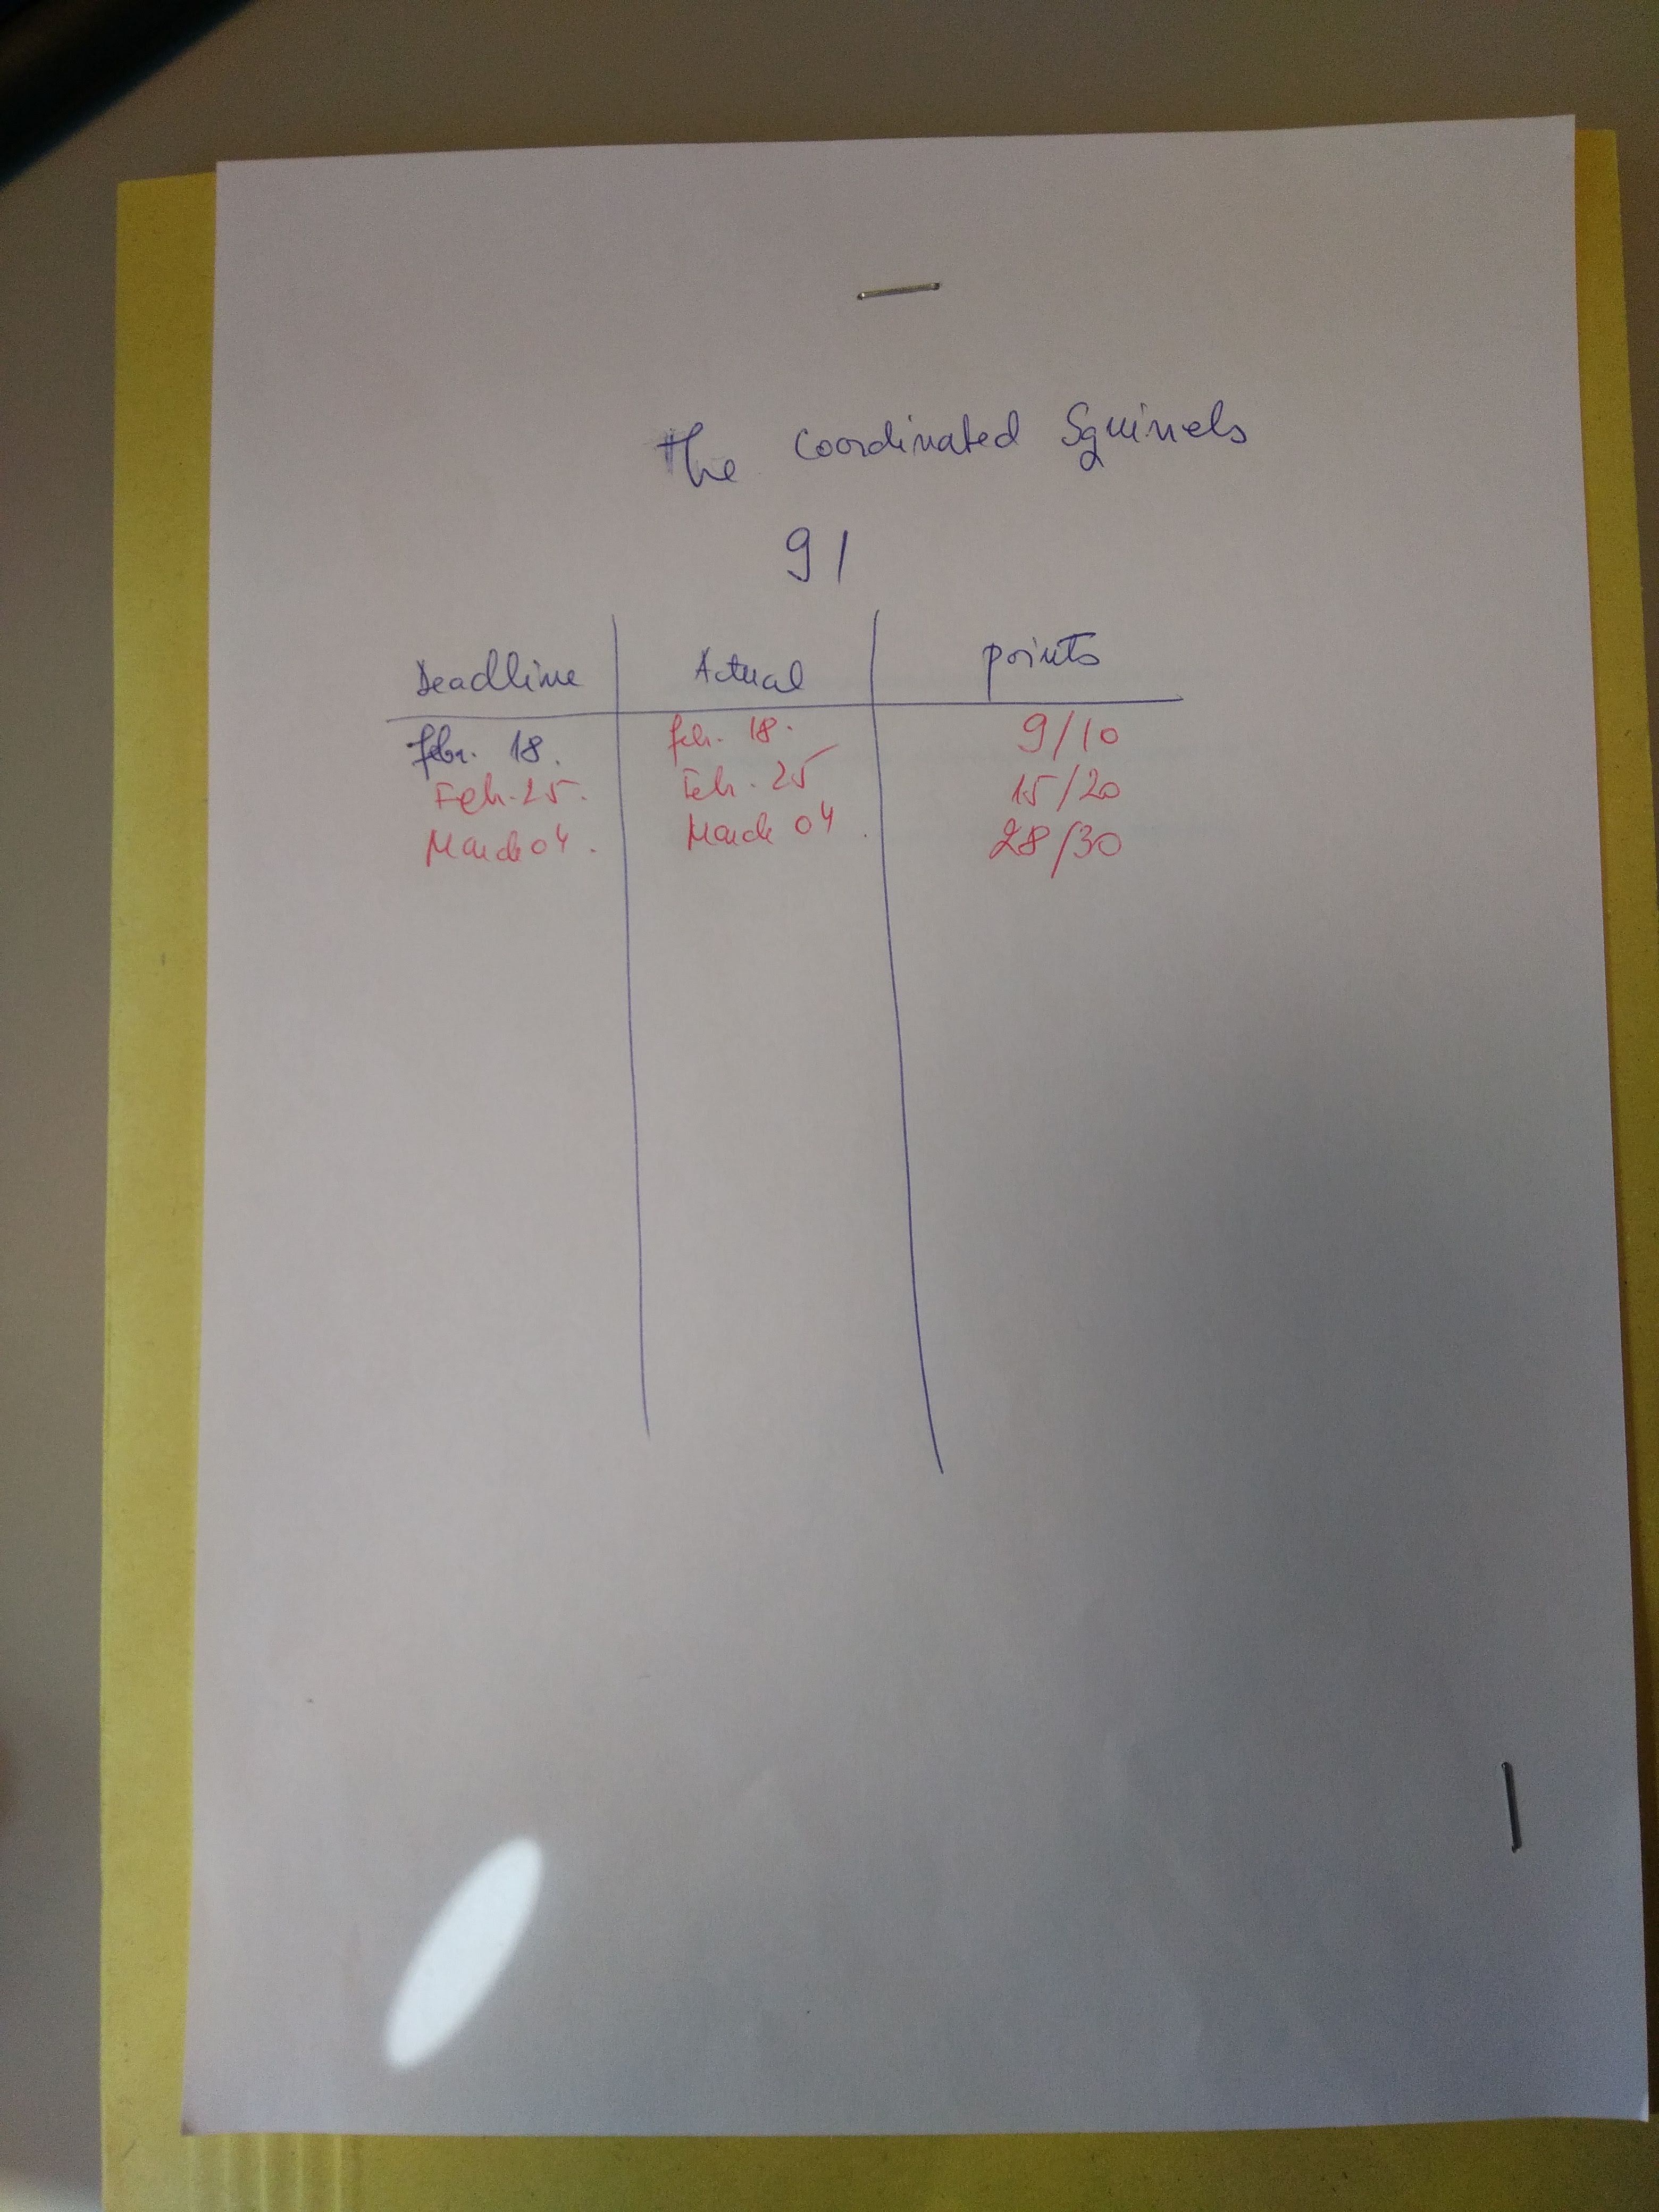 The Coordinated Squirrels
91
Deadline Actual points
Febr. 18. Feb. 18. 9/10
Feb. 25. Feb. 25 15/20
March 04. March 04. 28/30